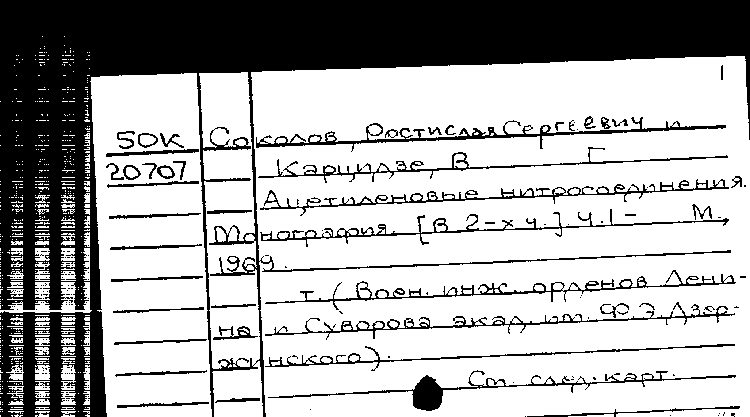 1
50К Соколов, Ростислав Сергеевич и
20707 Карцидзе, В Г
Ацетиленовые нитросоединения.
Монография. [В 2-х ч.] Ч.1- М.,
1969.
т. (Воен. инж. орденов Лени-
на и Суворова акад. им. Ф.Э. Дзер-
жинского).
См. след. карт.